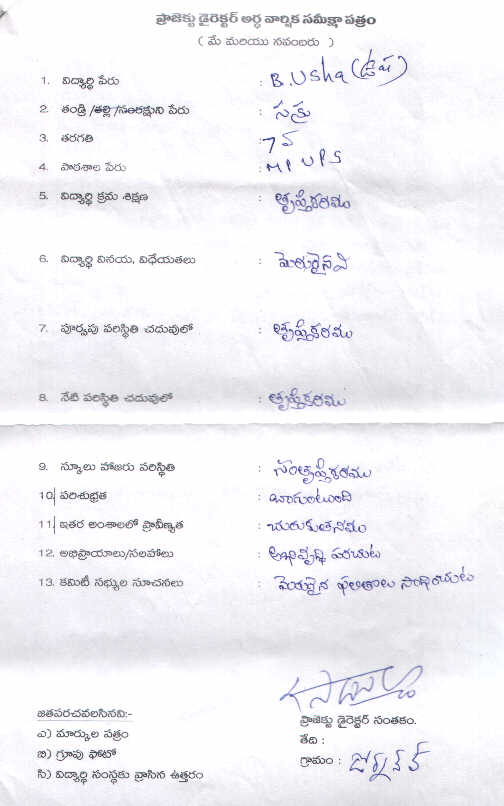 ప్రాజెక్టు డైరెక్టర్ అర్ధ వార్షిక సమీక్షా పత్రం
( మే మరియు నవంబరు )
1. విద్యార్థి పేరు : B. Usha (ఉష)
2. తండ్రి /తల్లి/సంరక్షుని పేరు : సత్తు
3. తరగతి : 7వ
4. పాఠశాల పేరు : MPUPS
5. విద్యార్థి క్రమ శిక్షణ : తృప్తికరము
6. విద్యార్థి వినయ, విధేయతలు : మెరుగైనవి
7. పూర్వపు పరిస్థితి చదువులో : తృప్తికరము
8. నేటి పరిస్థితి చదువులో : తృప్తికరము
9. స్కూలు హాజరు పరిస్థితి : సంతృప్తికరము
10. పరిశుభ్రత : బాగుంటుంది
11. ఇతర అంశాలలో ప్రావీణ్యత : చురుకుతనము
12. అభిప్రాయాలు/సలహాలు : అభివృద్ధి పరచుట
13. కమిటీ సభ్యుల సూచనలు : మెరుగైన ఫలితాలు సాధించుట
జతపరచవలసినవి:-
ప్రాజెక్టు డైరెక్టర్ సంతకం.
ఎ) మార్కుల పత్రం
తేది :
బి) గ్రూపు ఫోటో
గ్రామం :
సి) విద్యార్థి సంస్థకు వ్రాసిన ఉత్తరం